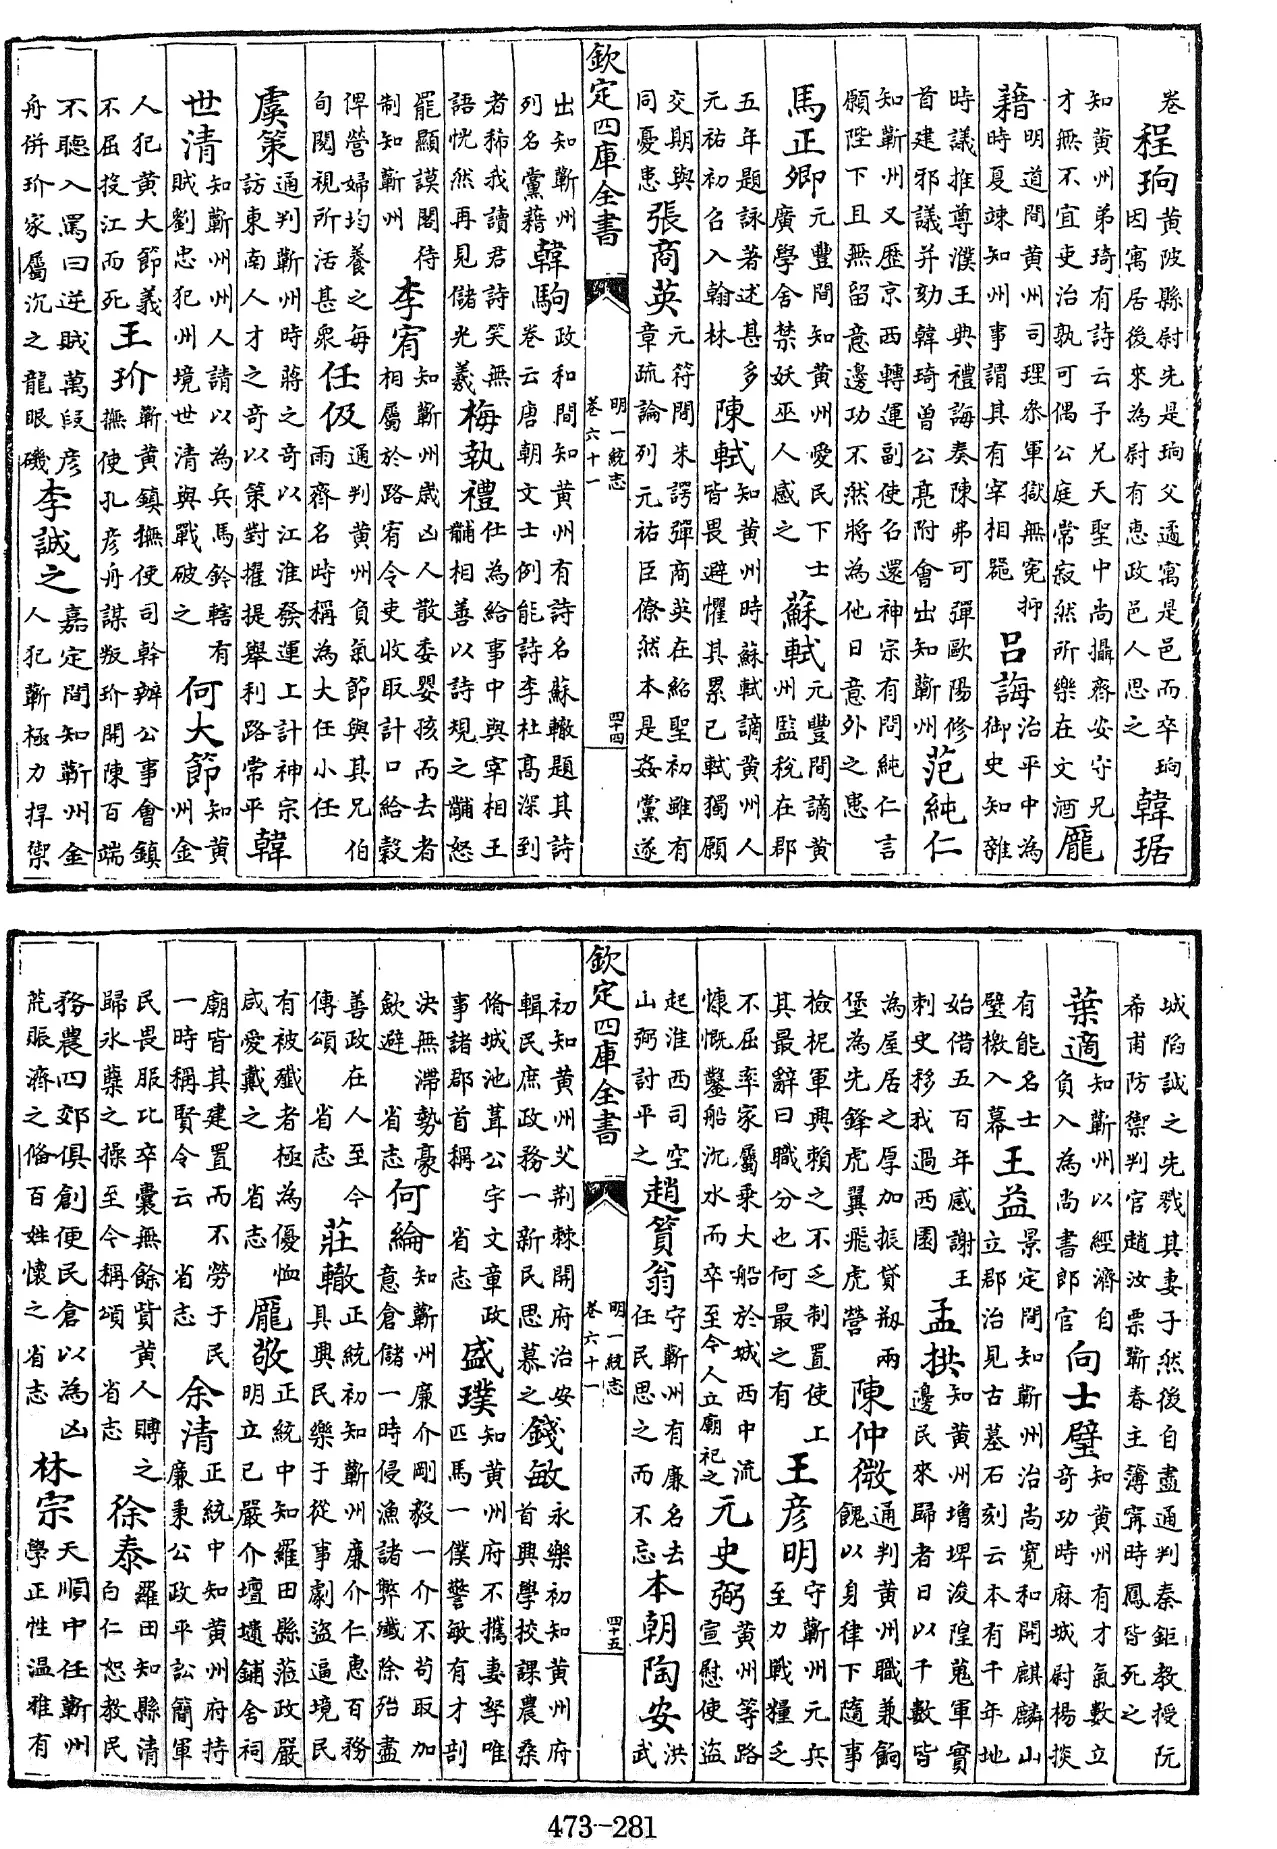 卷 程珦 黄陂縣尉先是珦父遹寓是邑而卒珦因寓居後來為尉有惠政邑人思之 韓琚
知黄州弟琦有詩云予兄天聖中尚攝齊安守兄才無不宜吏治孰可偶公庭常寂然所樂在文酒 龎
藉 明道間黄州司理叅軍獄無寃抑時夏竦知州事謂其有宰相器 吕誨 治平中為御史知雜
時議推尊濮王典禮誨奏陳弗可彈歐陽修首建邪議并劾韓琦曾公亮附會出知蘄州 范純仁
知蘄州又歷京西轉運副使召還神宗有問純仁言願陛下且無留意邊功不然將為他日意外之患
馬正卿 元豐間知黄州愛民下士廣學舍禁妖巫人感之 蘇軾 元豐間謫黄州監税在郡
五年題詠著述甚多元祐初召入翰林 陳軾 知黄州時蘇軾謫黄州人皆畏避懼其累已軾獨願
交期與同憂患 張商英 元符間朱諤彈商英在紹聖初雖有章疏論列元祐臣僚然本是姦黨遂
欽定四庫全書 明一統志 卷六十一 四十四
出知蘄州列名黨藉 韓駒 政和間知黄州有詩名蘇轍題其詩卷云唐朝文士例能詩李杜髙深到
者稀我讀君詩笑無語恍然再見儲光羲 梅執禮 仕為給事中與宰相王黼相善以詩規之黼怒
罷顯謨閣待制知蘄州 李宥 知蘄州歲凶人散委嬰孩而去者相屬於路宥令吏收取計口給穀
俾營婦均養之每旬閲視所活甚衆 任伋 通判黄州負氣節與其兄伯雨齊名時稱為大任小任
虞策 通判蘄州時蔣之奇以江淮發運上計神宗訪東南人才之奇以策對擢提舉利路常平 韓
世清 知蘄州州人請以為兵馬鈐轄有賊劉忠犯州境世清與戰破之 何大節 知黄州金
人犯黄大節義不屈投江而死 王玠 蘄黄鎮撫使司幹辦公事會鎮撫使孔彦舟謀叛玠開陳百端
不聽入罵曰逆賊萬段彦舟併玠家屬沉之龍眼磯 李誠之 嘉定間知蘄州金人犯蘄極力捍禦
城陷誠之先戕其妻子然後自盡通判秦鉅教授阮希甫防禦判官趙汝票蘄春主簿寗時鳳皆死之
葉適 知蘄州以經濟自負入為尚書郎官 向士璧 知黄州有才氣數立奇功時麻城尉楊掞
有能名士璧檄入幕 王益 景定間知蘄州治尚寛和開麒麟山立郡治見古墓石刻云本有千年地
始借五百年感謝王刺史移我過西園 孟拱 知黄州增埤浚隍蒐軍實邊民來歸者日以千數皆
為屋居之厚加振貸剏兩堡為先鋒虎翼飛虎營 陳仲微 通判黄州職兼餉餽以身律下隨事
檢柅軍興賴之不乏制置使上其最辭曰職分也何最之有 王彦明 守蘄州元兵至力戰糧乏
不屈率家屬乗大船於城西中流慷慨鑿船沉水而卒至今人立廟祀之 元史弼 黄州等路宣慰使盜
起淮西司空山弼討平之 趙篔翁 守蘄州有廉名去任民思之而不忘 本朝陶安 洪武
欽定四庫全書 明一統志 卷六十一 四十五
初知黄州父荆棘開府治安輯民庶政務一新民思慕之 錢敏 永樂初知黄州府首興學校課農桑
脩城池葺公宇文章政事諸郡首稱 省志 盛璞 知黄州府不攜妻孥唯匹馬一僕警敏有才剖
決無滯勢豪歛避 省志 何綸 知蘄州廉介剛毅一介不苟取加意倉儲一時侵漁諸弊殱除殆盡
善政在人至今傳頌 省志 莊轍 正統初知蘄州廉介仁惠百務具興民樂于從事劇盜逼境民
有被殱者極為優恤咸愛戴之 省志 龎敬 正統中知羅田縣蒞政嚴明立已嚴介壇壝鋪舍祠
廟皆其建置而不勞于民一時稱賢令云 省志 余清 正統中知黄州府持廉秉公政平訟簡軍
民畏服比卒囊無餘貲黄人賻之歸氷蘗之操至今稱頌 省志 徐泰 羅田知縣清白仁恕教民
務農四郊俱創便民倉以為凶荒賑濟之備百姓懷之 省志 林宗 天順中任蘄州學正性温雅有
473-281